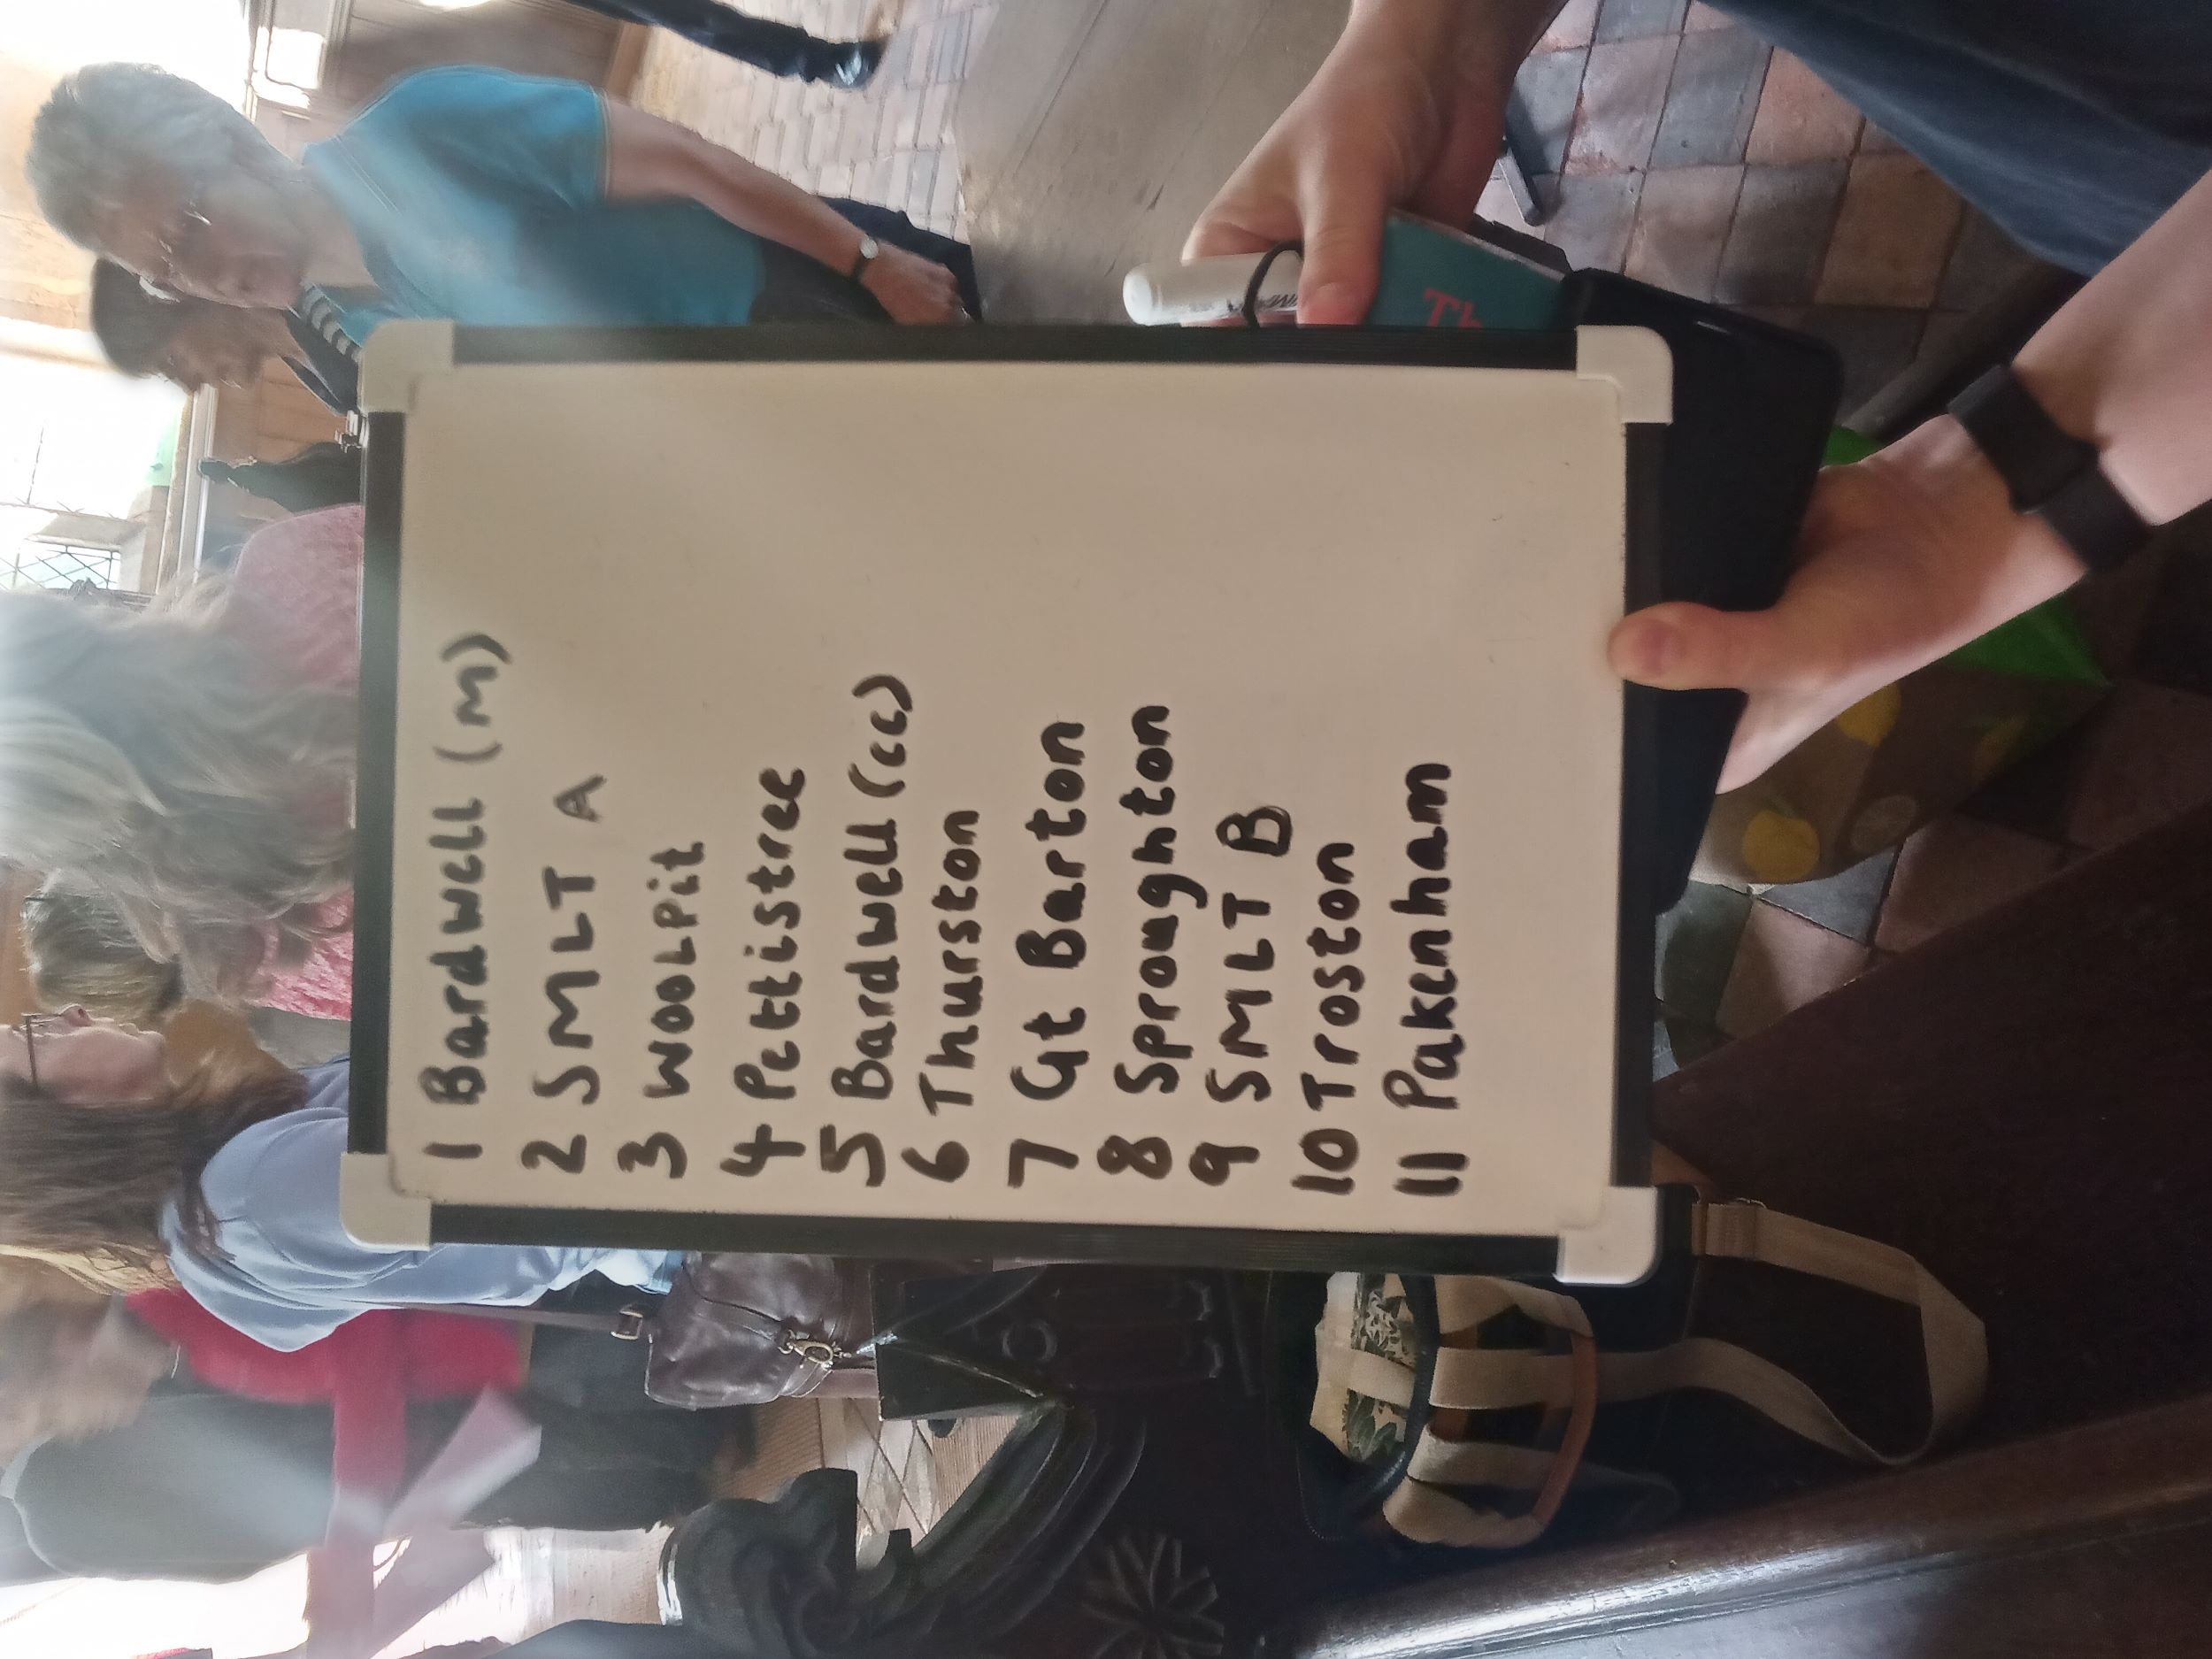 1 Bardwell (M)
2 SMLT A
3 WOOLPit
4 Pettistree
5 Bardwell (cc)
6 Thurston
7 Gt Barton
8 Sproughton
9 SMLT B
10 Troston
11 Pakenham